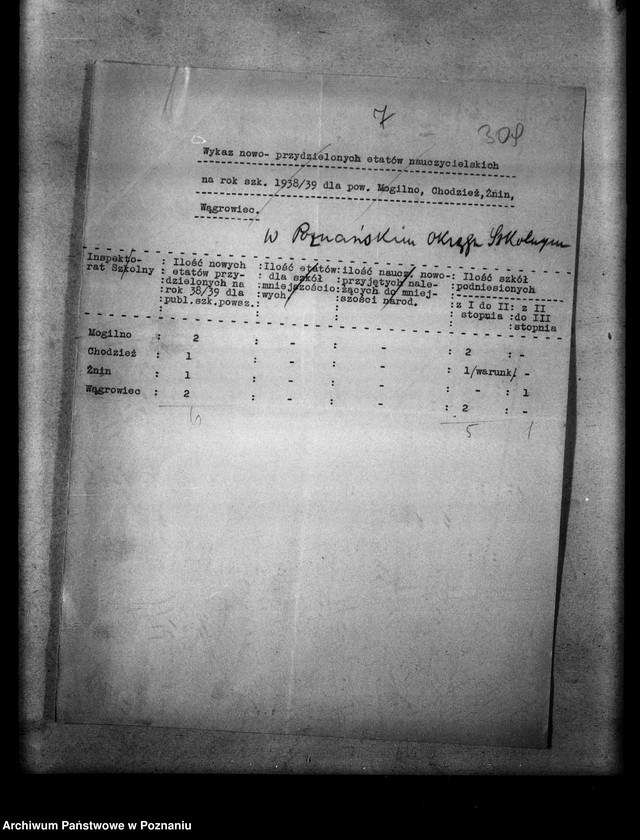 7
309
Wykaz nowo- przydzielonych etatów nauczycielskich
na rok szk. 1938/39 dla pow. Mogilno, Chodzież,Żnin,
Wągrowiec.
w Poznańskim Okręgu Szkolnym
Inspekto- : Ilość nowych :Ilość etatów:ilość naucz. nowo-: Ilość szkół
rat Szkolny : etatów przy- : dla szkół :przyjętych nale- :podniesionych
:dzielonych na :mniejszościo:żących do mniej-
:rok 38/39 dla :wych. :szości narod. :z I do II: z II
:publ.szk.powsz.: : : stopnia :do III
:stopnia
Mogilno : 2 : - : - : 2 : -
Chodzież : 1 : - : - : 1/warunk/ -
Żnin : 1 : - : - : - : 1
Wągrowiec : 2 : - : - : 2 : -
5 1